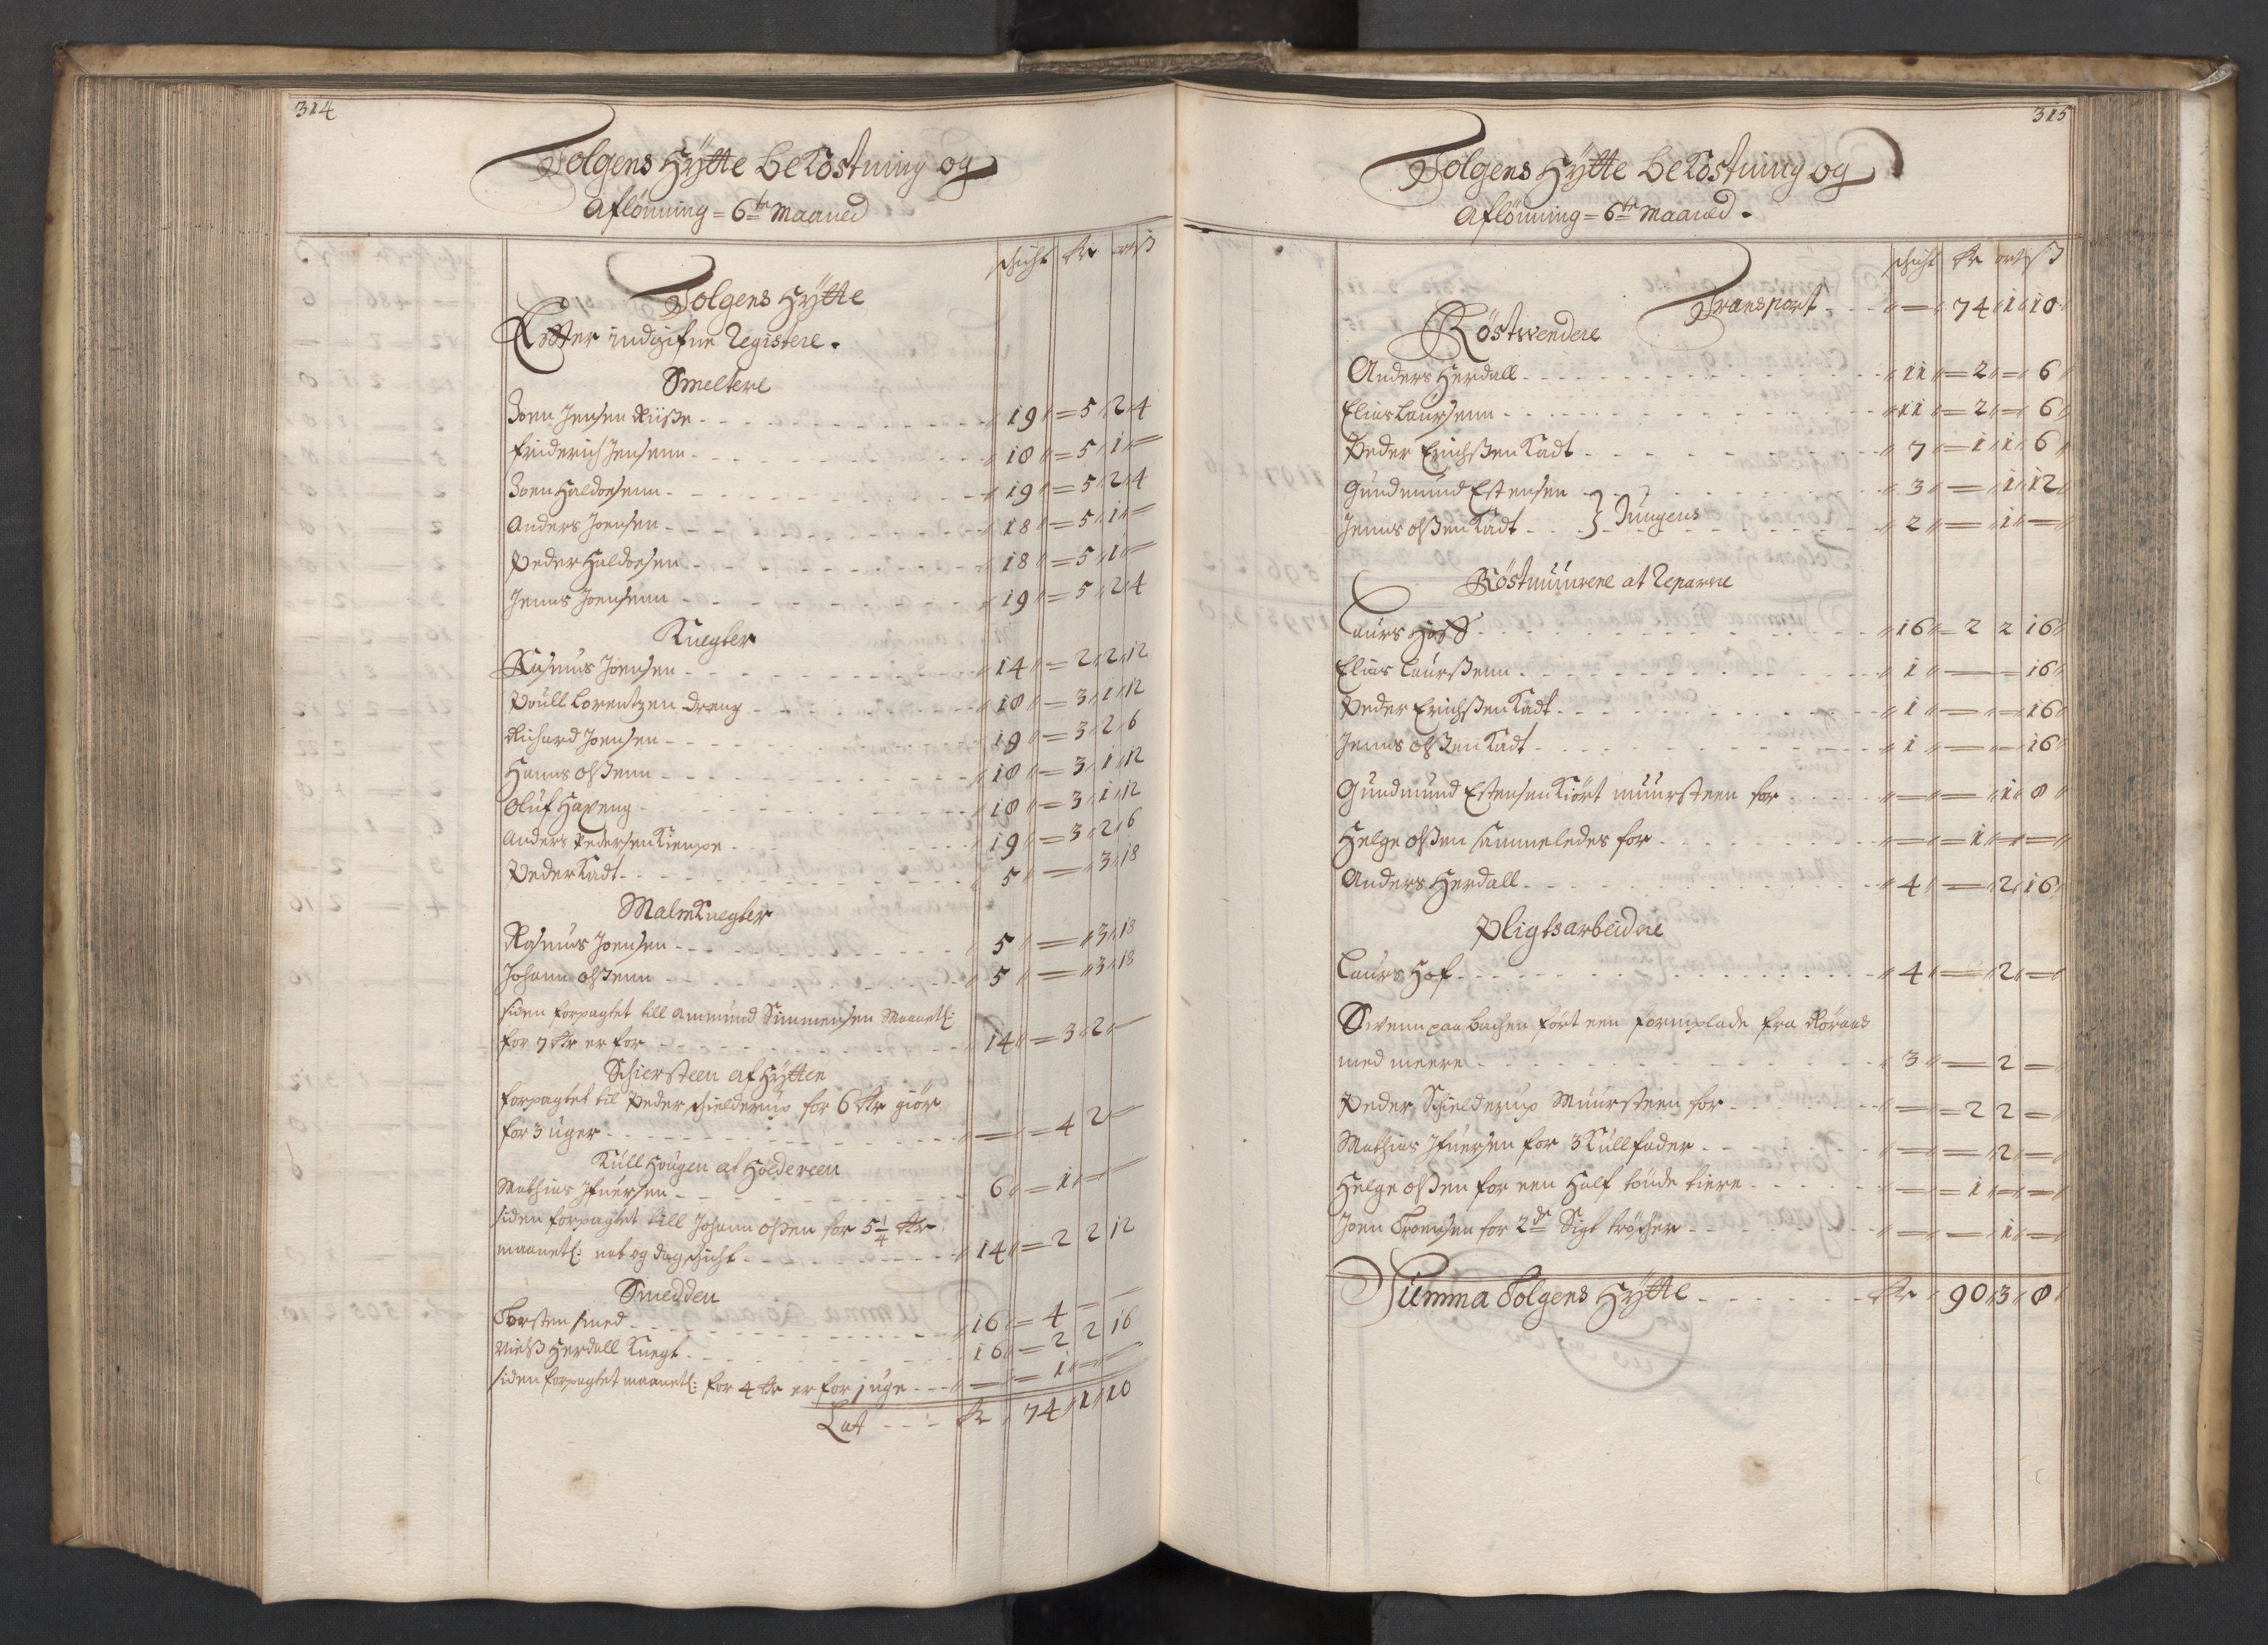 314
Tolgens Hÿtte beKostning og
Aflönning = 6te Maaned
schicht Rdr ort ß
Tolgens Hÿtte
Effter indgifne Registere.
Smeltere
Joen Jensen Riiße - - - 19 = 5 2 4
Friderich Jensenn - - - 18 = 5 1 =
Joen Haldoesenn - - - 19 = 5 2 4
Anders Joensen - - - 18 = 5 1 =
Peder Haldoesen - - - 18 = 5 1 =
Jenns Joensenn - - - 19 = 5 2 4
Knegter
Rasmus Joensen - - - 14 = 2 2 12
Poull Lorentzen dreng - - - 18 = 3 1 12
Richard Joensen - - - 19 = 3 2 6
Hanns olßenn - - - 18 = 3 1 12
Oluf Haveng - - - 18 = 3 1 12
Anders Pedersen Kiempe - - - 19 = 3 2 6
Peder Kadt - - - 5 = 3 18
MalmKnegter
Rasmus Joensen - - - 5 = 3 18
Johann olßenn - - - 5 = 3 18
siden forpagtet till Ammund Simmensen Maanetl:
for 7 Rdr er for - - - 14 = 3 2 =
Schiersteen af Hÿtten
forpagtet til Peder schielderup for 6 Rdr giör
for 3 uger - - - = = 4 2 =
Kull Hougen at Holdereen
Mathias Ifuersen - - - 6 = 1 =
siden forpagtet till Johann olßen for 5 1/4 Rdr
maanetl: nat og dag schicht - - - 14 = 2 2 12
Smedden
Torsten smed - - - 16 = 4 = =
Nielß Herdall Knegt - - - 16 = 2 2 16
siden forpagtet maanetl: for 4 Rdr er for 1 uge - - - = = 1 = =
Lat - - - Rdr 74 1 10
315
Tolgens Hÿtte beKostning og
Aflönning = 6te Maaned.
schicht Rdr ort ß
Transport - - = 74 1 10
Röstwendere
Anders Herdall - - - 11 = 2 = 6
Elias Laursenn - - - 11 = 2 = 6
Peder Erichßen Kadt - - - 7 = 1 1 6
Gundmund Estensen - - - 3 = 1 12
Jenns olßen Kadt - - } Jungens - - - 2 = 1 =
Röstmuurene at Reparere
Laurs Hoff - - - 16 = 2 2 16
Elias Laurßenn - - - 1 = = 16
Peder Erichßen Kadt - - - 1 = = 16
Jenns olßen Kadt - - - 1 = = 16
Gundmund Estensen Kiört muursteen for - - - = = 1 8
Helge olßen sammeledes for - - - = = 1 = =
Anders Herdall - - - 4 = 2 16
Pligtsarbeidere
Laurs Hof - - - 4 = 2 =
Swenn paa bachen ført een formplade fra Røraas
med meere - - - 3 = 2 =
Peder Schielderup Muursteen for - - - = = 2 2 =
Mathias Ifuersen for 3 Kullfader - - - = = 2 =
Helge olßen for een Half tönde tiere - - - = = 1 = =
Joen Troensen for 2de Sigt tröcher - - - = = 1 =
Summa Tolgens Hÿtte - - - Rdr 90 3 8